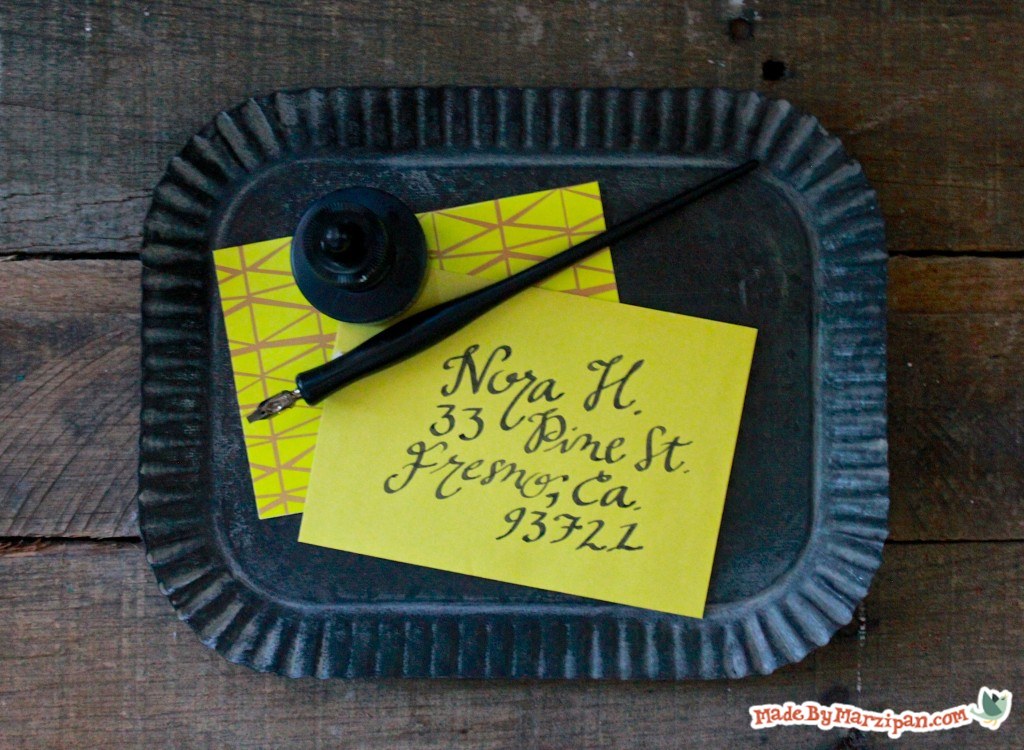 Nora H.
33 Pine St.
Fresno, Ca.
93721
MadeByMarzipan.com